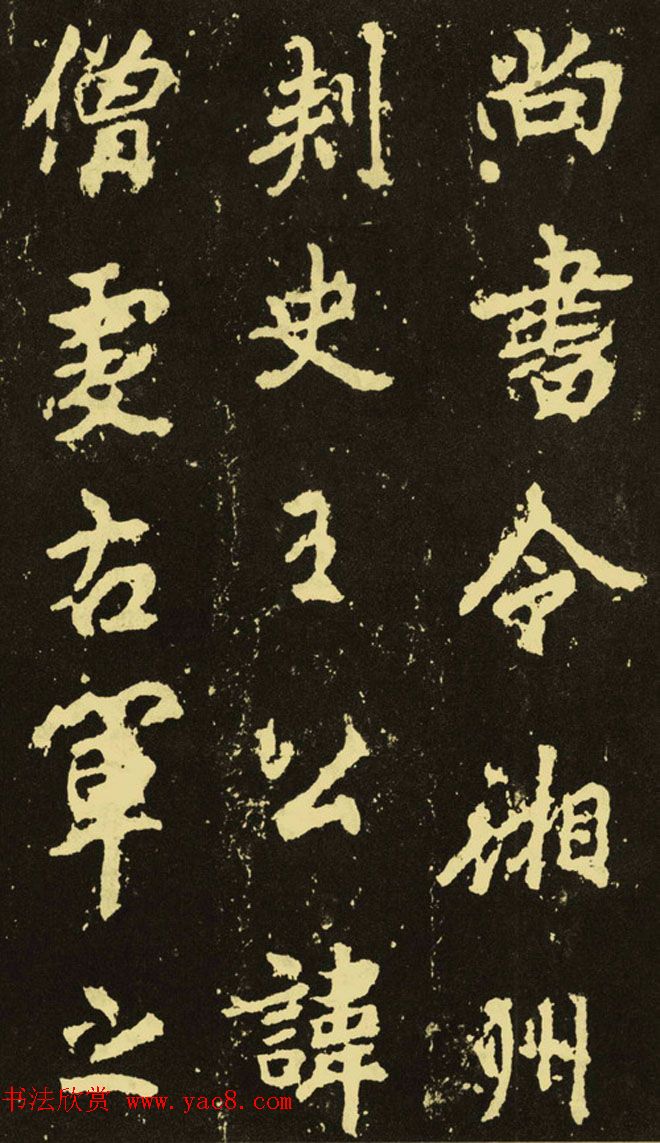 尚書令湘州
刺史王公諱
僧虔右軍之
书法欣赏 www.yac8.com